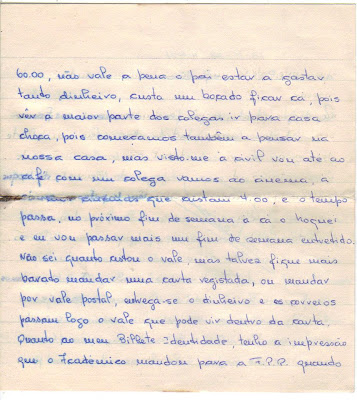 60.00, não vale a pena o pai estar a gastar
tanto dinheiro, custa um bocado ficar cá, pois
vêr a maior parte dos colegas ir para casa
choca, pois começamos também a pensar na
nossa casa, mas visto-me à civil vou até ao
café com um colega vamos ao cinema, a
que custam 4.00, e o tempo
passa, no próximo fim de semana á cá o hoquei
e eu vou passar mais um fim de semana entretido.
Não sei quanto custou o vale, mas talvez fique mais
barato mandar uma carta registada, ou mandar
por vale postal, entrega-se o dinheiro e os correios
passam logo o vale que pode vir dentro da carta.
Quanto ao meu Bilhete Identidade, tenho a impressão
que o Académico mandou para a F.P.P. quando